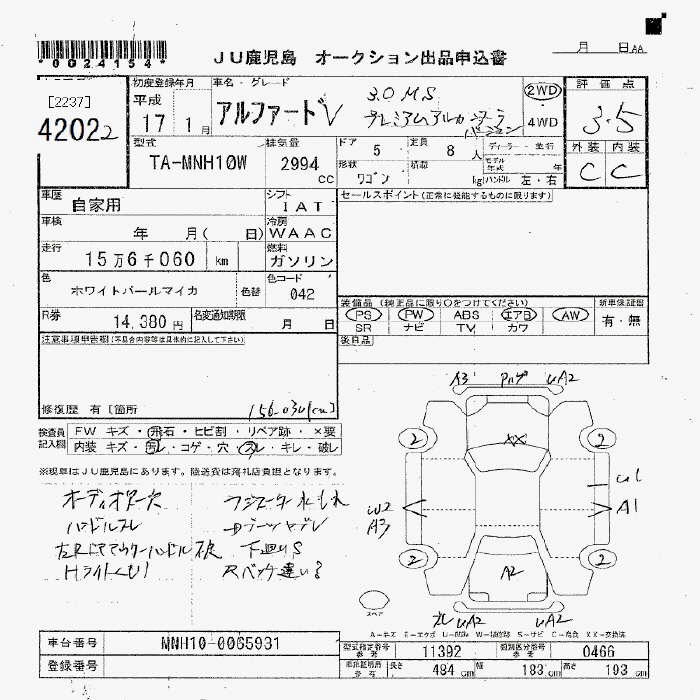 *0024154*
JU鹿児島 オークション出品申込書
月 日AA
[2237]
42022
初度登録年月
平成
17 1月
車名・グレード
アルファードV
3.0 MS
プレミアムアルカンターラ
バージョン
2WD
4WD
評価点
3.5
外装 内装
C C
型式
TA-MNH10W
排気量
2994
CC
ドア 5
定員 8人
形状 ワゴン
積載 kg
ディーラー・並行
モデル年式 年
ハンドル 左・右
車歴 自家用
シフト IAT
車検 年 月( 日)
冷房 WAAC
走行 15万6千060 km
燃料 ガソリン
色 ホワイトパールマイカ 色替
色コード 042
R券 14,380円
名変通知期限 月 日
セールスポイント(正常に機能するものに限ります)
装備品 (純正品に限り○をつけてください)
新車保証書
PS PW ABS エアB AW
SR ナビ TV カワ
有・無
後日品
注意事項申告欄(不具合内容等は具体的に記入して下さい)
修復歴 有[箇所
156.034(km)
検査員記入欄
FW キズ・飛石・ヒビ割・リペア跡・×要
内装 キズ・汚レ・コゲ・穴・スレ・キレ・破レ
※現車はJU鹿児島にあります。陸送費は落札店負担となります。
オーディオ欠
ハンドルスレ
Hライトくもり
下廻りS
Rバッジ違い
A3 U A2
XX
2 2
U2
A3
U1
A1
2 2
A2
UA2 UA2
スペア
A-キズ E-エクボ U-凹み W-補修跡 S-サビ C-腐食 XX-交換済
車台番号 MNH10-0065931
登録番号
型式指定番号 参考 11392
類別区分番号 参考 0466
車検証明局 参考
長さ 484cm 幅 183cm 高さ 193cm